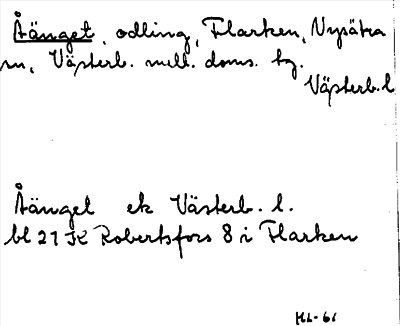 Åänget, odling, Flarken, Nysätra
sn, Västerb. mell. doms. hg.
Västerb. l
Åänget ek Västerb. l.
bl 21 K Robertsfors 8 i Flarken
HL-61